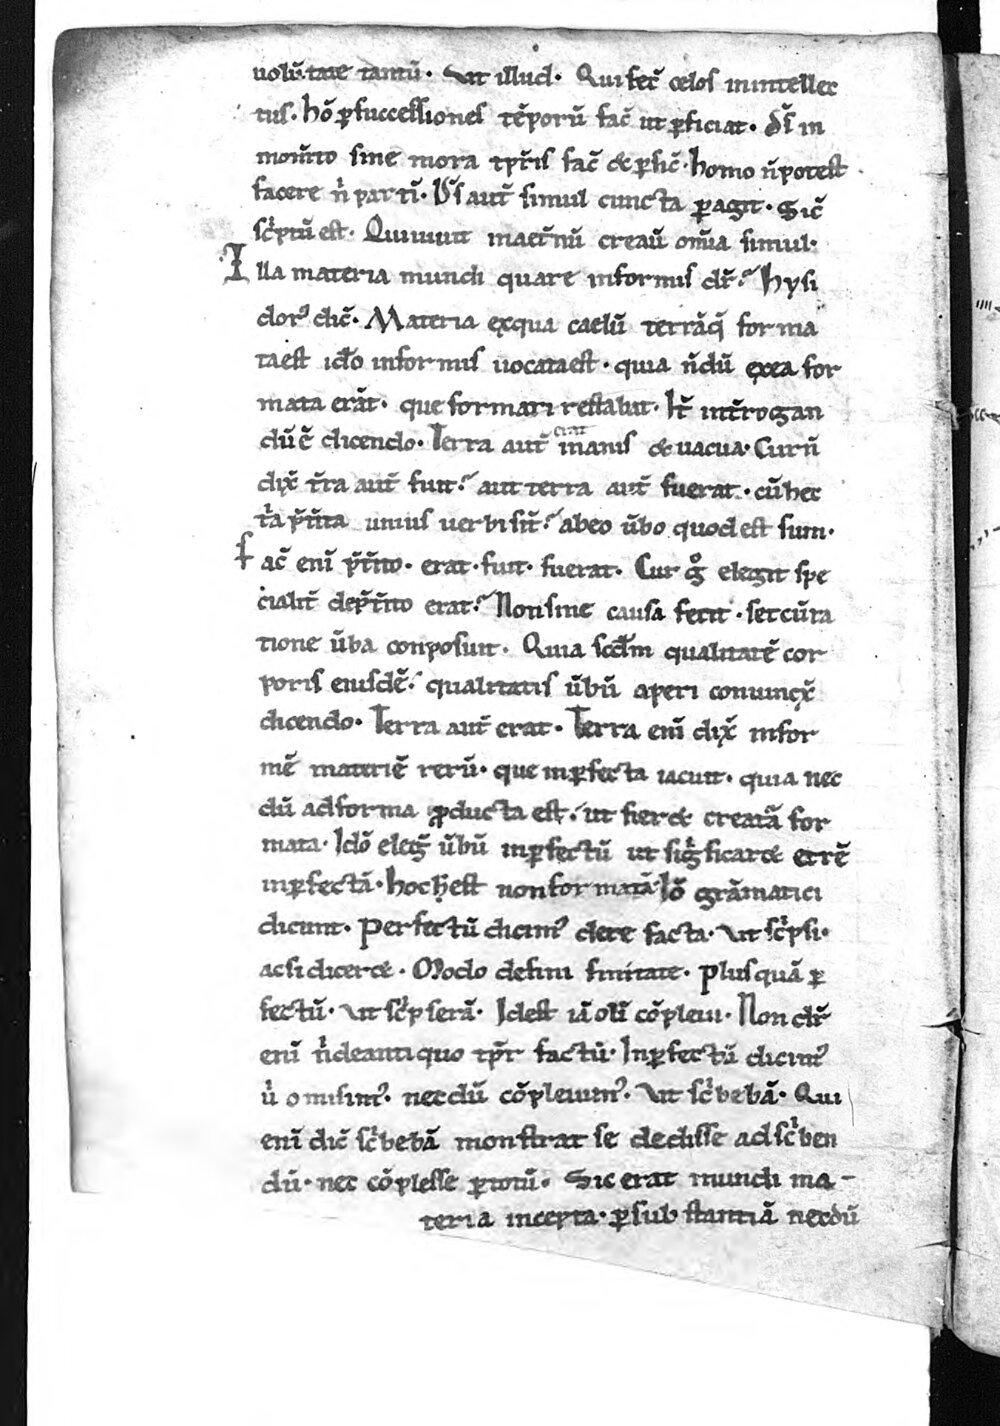 uolūtate tantū. Vt illud. Qui fec̄ celos inintellec
tus. hō ꝑsuccessiones tēporū fac̄ ut ꝑficiat. d̄s in
mom̄to sine mora tp̄ris fac̄ & ꝑfic̄. homo n̄potest
facere n̄ partī. D̄s aut̄ simul cuncta ꝑagit. Sic̄
sc̄ptū est. Quiuiuit inaet̄nū creau̅ om̅ia simul.
Illa materia mundi quare informis dr̄. hysi
dorꝰ dic̄. Materia exqua caelū terrāq̄ forma
taest id̄o informis uocataest. quia n̄dū exea for
mata erāt. que formari restabāt. It̄ int̄rogan
dū ē dicendo. Terra aut̄ erat inanis & uacua. Cur n̄
dix̄ t̄ra aut̄ fuit. aut terra aut̄ fuerat. cū hec
t̄a p̄t̄ita unius uerbi sīt. abeo ūbo quod est sum.
fac̄ enī p̄t̄ito. erat. fuit. fuerat. Cur ḡ elegit spe
cialit̄ dep̄t̄ito erat. Nonsine causa fecit. set cūra
tione ūba conposuit. Quia scd̄m qualitatē cor
poris eiusdē. qualitatis ūbū aperi conuinx̄
dicendo. Terra aut̄ erat. Terra enī dix̄ infor
mē materiē rerū. que inꝑfecta iacuit. quia nec
dū adforma ꝓducta est. ut fier& creatā for
mata. Idō eleḡ ūbū inꝑfectū ut siḡficar& t̄rē
inꝑfectā. hoc ḣest nonformatā. Iō grāmatici
dicunt. Perfectū dicimꝰ dere facta. Vt sc̄psi.
acsi dicer&. Modo defini finitate. Plusquā ꝑ
fectū. Vt sc̄pserā. Idest iā olī cōpleui. Non dr̄
enī n̄deantiquo tp̄r factū. Inꝑfectū dicimꝰ
ū omisimꝰ. necdū cōpleuimꝰ. Vt sc̄bebā. Qui
enī dic̄ sc̄bebā monstrat se dedisse adsc̄ben
dū. nec cōplesse ꝑtotū. Sic erat mundi ma-
teria incepta. ꝑsubstantiā necdū